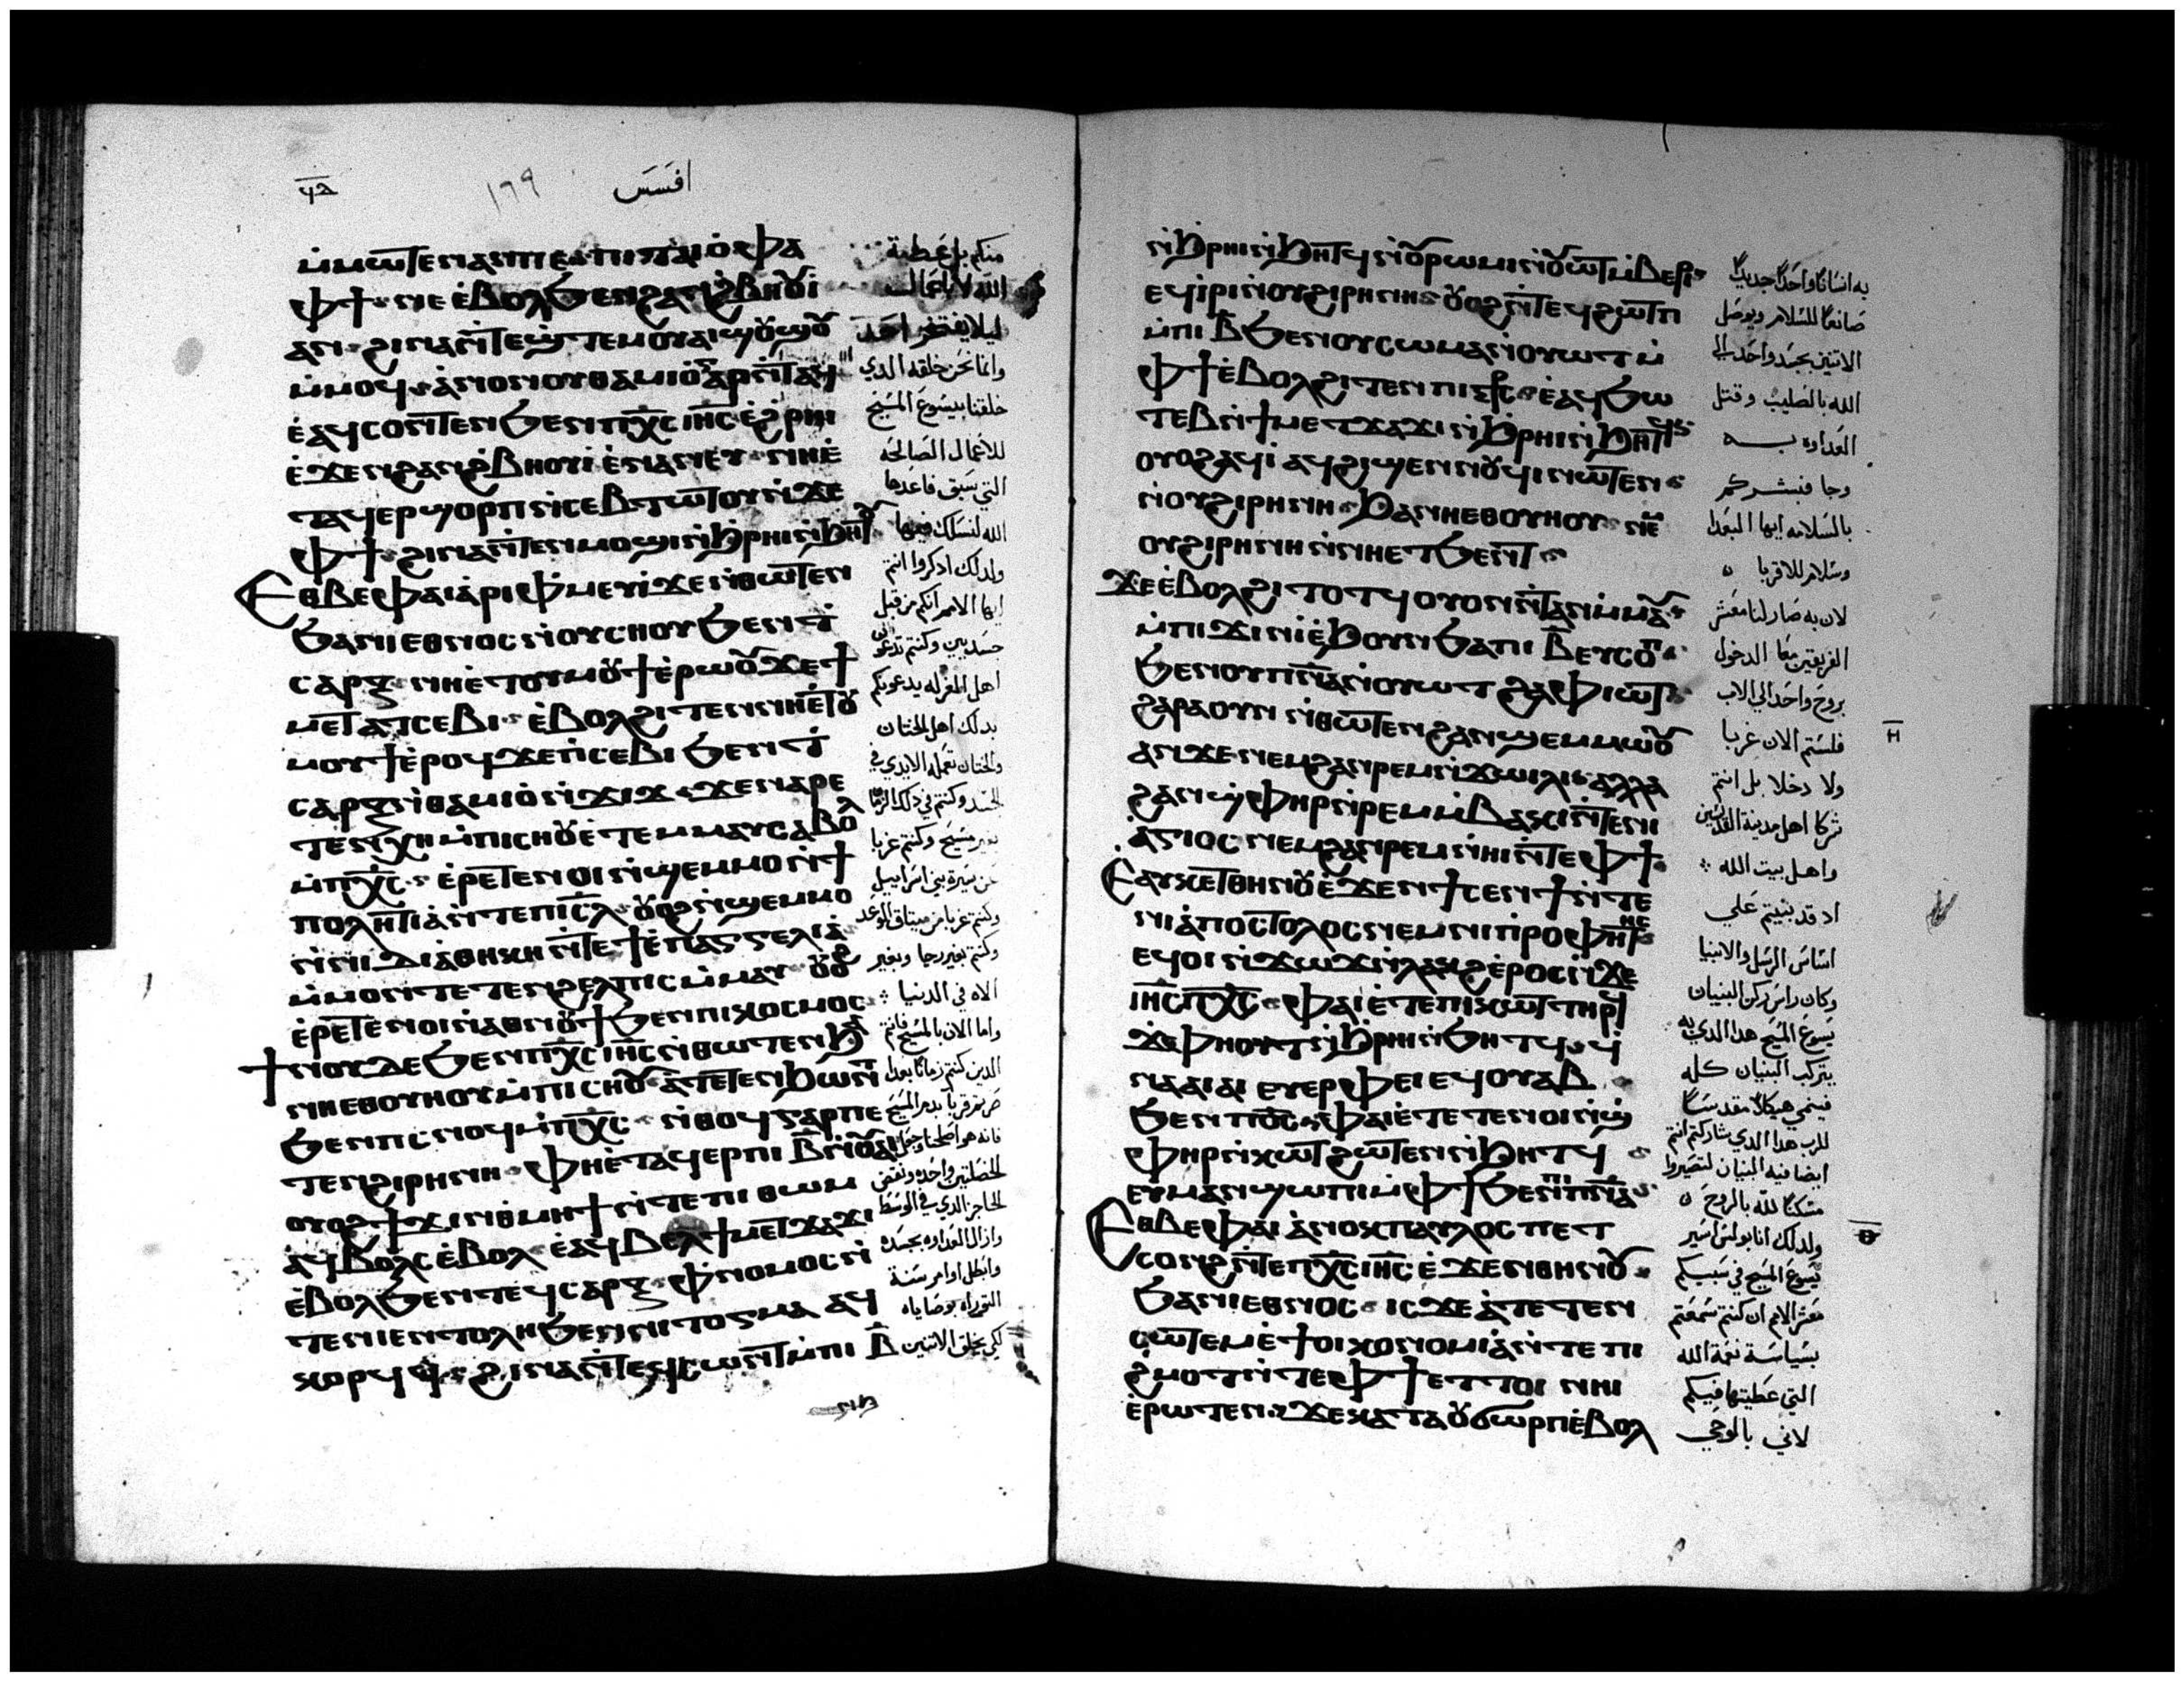 افسس
١٦٩
ⲙ̀ⲙⲱⲧⲉⲛ ⲁⲛ ⲡⲉ ⲡⲓⲧⲁⲓⲟ ⲫⲁ
ⲫϯ ⲛⲉ ⲉ̀ⲃⲟⲗ ϧⲉⲛ ϩⲁⲛϩ̀ⲃⲏⲟⲩⲓ̀
ⲁⲛ ϩⲓⲛⲁ ⲛ̀ⲧⲉϣ̀ⲧⲉⲙ ⲟⲩⲁⲓ ϣⲟⲩϣⲟⲩ
ⲙ̀ⲙⲟϥ ⲁ̀ⲛⲟⲛ ⲟⲩⲑⲁⲙⲓⲟ̀ ⲅⲁⲣ ⲛ̀ⲧⲁϥ
ⲉ̀ⲁϥⲥⲟⲛⲧⲉⲛ ϧⲉⲛ ⲡⲭ̅ⲥ̅ ⲓⲏ̅ⲥ̅ ⲉ̀ϩ̀ⲣⲏⲓ
ⲉ̀ϫⲉⲛ ϩⲁⲛϩ̀ⲃⲏⲟⲩⲓ̀ ⲉ̀ⲛⲁⲛⲉⲩ ⲛⲏⲉ̀
ⲧⲁϥⲉⲣϣⲟⲣⲡ ⲛ̀ⲥⲉⲃⲧⲱⲧⲟⲩ ⲛ̀ϫⲉ
ⲫϯ ϩⲓⲛⲁ ⲛ̀ⲧⲉⲛⲙⲟϣⲓ ⲛ̀ϧⲣⲏⲓ ⲛ̀ϧⲏⲧⲟⲩ
Ⲉⲑⲃⲉ ⲫⲁⲓ ⲁ̀ⲣⲓⲫ̀ⲙⲉⲩⲓ̀ ϫⲉ ⲛ̀ⲑⲱⲧⲉⲛ
ϧⲁ ⲛⲓⲉⲑⲛⲟⲥ ⲛ̀ⲟⲩⲥⲏⲟⲩ ϧⲉⲛ ϯ
ⲥⲁⲣⲝ ⲛⲏⲉ̀ⲧⲟⲩⲙⲟⲩϯ ⲉ̀ⲣⲱⲟⲩ ϫⲉ ϯ
ⲙⲉⲧⲁⲧⲥⲉⲃⲓ ⲉ̀ⲃⲟⲗ ϩⲓⲧⲉⲛ ⲛⲏⲉ̀ⲧⲟⲩ
ⲙⲟⲩϯ ⲉ̀ⲣⲟϥ ϫⲉ ⲡ̀ⲥⲉⲃⲓ ϧⲉⲛ ϯ
ⲥⲁⲣⲝ ⲛ̀ⲑⲁⲙⲓⲟ̀ ⲛ̀ϫⲓϫ ϫⲉ ⲛⲁⲣⲉ
ⲧⲉⲛⲭⲏ ⲙ̀ⲡⲓⲥⲏⲟⲩ ⲉ̀ⲧⲉⲙⲙⲁⲩ ⲥⲁⲃⲟⲗ
ⲙ̀ⲡⲭ̅ⲥ̅ ⲉ̀ⲣⲉⲧⲉⲛⲟⲓ ⲛ̀ϣⲉⲙⲙⲟ ⲛ̀ϯ
ⲡⲟⲗⲏⲧⲓⲁ̀ ⲛ̀ⲧⲉ ⲡⲓⲥ̅ⲗ̅ ⲟⲩⲟϩ ⲛ̀ϣⲉⲙⲙⲟ
ⲛ̀ⲛⲓⲇⲓⲁ̀ⲑⲏⲕⲏ ⲛ̀ⲧⲉ ϯⲉ̀ⲡⲁⲅⲅⲉⲗⲓⲁ̀
ⲙ̀ⲙⲟⲛⲧⲉⲧⲉⲛ ϩⲉⲗⲡⲓⲥ ⲙ̀ⲙⲁⲩ ⲟⲩⲟϩ
ⲉ̀ⲣⲉⲧⲉⲛⲟⲓ ⲛ̀ⲁⲑⲛⲟⲩϯ ϧⲉⲛ ⲡⲓⲕⲟⲥⲙⲟⲥ
Ϯⲛⲟⲩ ⲇⲉ ϧⲉⲛ ⲡⲭ̅ⲥ̅ ⲓⲏ̅ⲥ̅ ⲛ̀ⲑⲱⲧⲉⲛ ϧⲁ
ⲛⲏⲉⲑⲟⲩⲏⲟⲩ ⲙ̀ⲡⲓⲥⲏⲟⲩ ⲁ̀ⲧⲉⲧⲉⲛϧⲱⲛⲧ
ϧⲉⲛ ⲡⲥⲛⲟϥ ⲙ̀ⲡⲭ̅ⲥ̅ ⲛ̀ⲑⲟϥ ⲅⲁⲣ ⲡⲉ
ⲧⲉⲛϩⲓⲣⲏⲛⲏ ⲫⲏⲉ̀ⲧⲁϥⲉⲣ ⲡⲓⲃ̅ ⲛ̀ⲟⲩⲁⲓ
ⲟⲩⲟϩ ϯϫⲓⲛⲑⲙⲏϯ ⲛ̀ⲧⲉ ⲡⲓⲑⲱⲙ
ⲁ̀ϥⲃⲟⲗⲥ ⲉ̀ⲃⲟⲗ ⲉ̀ⲁϥⲃⲉⲗ ϯⲙⲉⲧϫⲁϫⲓ
ⲉ̀ⲃⲟⲗ ϧⲉⲛ ⲧⲉϥⲥⲁⲣⲝ ⲫ̀ⲛⲟⲙⲟⲥ ⲛ̀
ⲧⲉ ⲛⲓⲉⲛⲧⲟⲗⲏ ϧⲉⲛ ⲛⲓⲧⲟⲅⲙⲁ ⲁϥ
ⲕⲟⲣϥϥ ϩⲓⲛⲁ ⲛ̀ⲧⲉϥⲥⲱⲛⲧ ⲙ̀ⲡⲓⲃ̅
منكم بل عطية
الله لا باعمال
ليلا يفتخر احد
وانما نحن خلقه الدي
خلقنا بيسوع المسيح
للاعمال الصالحه
التي سبق فاعدها
الله لنسلك فيها
ولدلك ادكروا انتم
ايها الامم انكم من قبل
جسدبين وكنتم تدعون
اهل الغرله يدعونكم
بدلك اهل الختان
والختان تعمله الايدي في
الجسد وكنتم في دلك الزمان
بغير مسيح وكنتم غربا
من سيرة بني اسراييل
وكنتم غربا من ميتاق الوعد
وكنتم بغير رجا وبغير
الاه في الدنيا
واما الان بالمسيح فانتم
الدين كنتم زمانا بعدا
صرتم قربا بدم المسيح
فانه هو اصلحنا وجعل
الخصلتين واحده ونقض
الحاجز الدي في الوسط
وازال العداوه بجسده
وابطل اوامر سنة
التوراه بوصاياه
لكي يخلق الاثنين
ⲛ̀ϧⲣⲏⲓ ⲛ̀ϧⲏⲧϥ ⲛ̀ⲟⲩⲣⲱⲙⲓ ⲛ̀ⲟⲩⲱⲧ ⲙ̀ⲃⲉⲣⲓ
ⲉϥⲓ̀ⲣⲓ ⲛ̀ⲟⲩϩⲓⲣⲏⲛⲏ ⲟⲩⲟϩ ⲛ̀ⲧⲉϥϩⲱⲧⲡ
ⲙ̀ⲡⲓⲃ̅ ϧⲉⲛ ⲟⲩⲥⲱⲙⲁ ⲛ̀ⲟⲩⲱⲧ ⲙ̀
ⲫϯ ⲉ̀ⲃⲟⲗ ϩⲓⲧⲉⲛ ⲡⲓⲥⲧⲣⲥ ⲉ̀ⲁϥϧⲱ
ⲧⲉⲃ ⲛ̀ϯⲙⲉⲧϫⲁϫⲓ ⲛ̀ϧⲣⲏⲓ ⲛ̀ϧⲏⲧϥ
ⲟⲩⲟϩ ⲁϥⲓ̀ ⲁϥϩⲓϣⲉⲛⲛⲟⲩϥⲓ ⲛⲱⲧⲉⲛ
ⲛ̀ⲟⲩϩⲓⲣⲏⲛⲏ ϧⲁ ⲛⲏⲉⲑⲟⲩⲏⲟⲩ ⲛⲉⲙ
ⲟⲩϩⲓⲣⲏⲛⲏ ⲛ̀ⲛⲏⲉⲧϧⲉⲛⲧ
ϫⲉ ⲉ̀ⲃⲟⲗ ϩⲓⲧⲟⲧϥ ⲟⲩⲟⲛ ⲛ̀ⲧⲁⲛ ⲙ̀ⲙⲁⲩ
ⲙ̀ⲡⲓϫⲓⲛⲓ̀ ⲉ̀ϧⲟⲩⲛ ϧⲁ ⲡⲓⲃ̅ ⲉⲩⲥⲟⲡ
ϧⲉⲛ ⲟⲩⲡⲛ̅ⲁ̅ ⲛ̀ⲟⲩⲱⲧ ϩⲁ ⲫⲓⲱⲧ
ϩⲁⲣⲁ ⲟⲩⲛ ⲛ̀ⲑⲱⲧⲉⲛ ϩⲁⲛϣⲉⲙⲙⲱⲟⲩ
ⲁⲛ ϫⲉ ⲛⲉⲙ ϩⲁⲛⲣⲉⲙⲛ̀ϫⲱⲓⲗⲓ ⲁⲗⲗⲁ
ϩⲁⲛϣ̀ⲫⲏⲣ ⲛ̀ⲣⲉⲙⲙ̀ⲃⲁⲕⲓ ⲛ̀ⲧⲉ ⲛⲓ
ⲁ̀ⲅⲓⲟⲥ ⲛⲉⲙ ϩⲁⲛⲣⲉⲙⲛ̀ⲏⲓ ⲛ̀ⲧⲉ ⲫϯ
Ⲉⲁⲩⲕⲉⲧ ⲑⲏⲛⲟⲩ ⲉ̀ϫⲉⲛ ϯⲥⲉⲛϯ ⲛ̀ⲧⲉ
ⲛⲓⲁ̀ⲡⲟⲥⲧⲟⲗⲟⲥ ⲛⲉⲙ ⲛⲓⲡⲣⲟⲫⲏⲧⲏⲥ
ⲉϥⲟⲓ ⲛ̀ϫⲱϫ ⲛ̀ⲗⲁⲕϩ ⲉ̀ⲣⲟⲥ ⲛ̀ϫⲉ
ⲓⲏ̅ⲥ̅ ⲡⲭ̅ⲥ̅ ⲫⲁⲓ ⲉ̀ⲧⲉ ⲡⲓⲕⲱⲧ ⲧⲏⲣϥ
ϫⲉⲫⲏⲟⲩⲧ ⲛ̀ϧⲣⲏⲓ ⲛ̀ϧⲏⲧϥ ϥ
ⲛⲁⲁⲓⲁⲓ ⲉⲩⲉⲣⲫⲉⲓ ⲉϥⲟⲩⲁⲃ
ϧⲉⲛ ⲡⲟ̅ⲥ̅ ⲫⲁⲓ ⲉ̀ⲧⲉⲧⲉⲛⲟⲓ ⲛ̀ϣ
ⲫⲏⲣ ⲛ̀ⲕⲱⲧ ϩⲱⲧⲉⲛ ⲛ̀ϧⲏⲧϥ
ⲉⲩⲙⲁⲛϣⲱⲡⲓ ⲙ̀ⲫϯ ϧⲉⲛ ⲡⲓⲡⲛ̅ⲁ̅
Ⲉⲑⲃⲉ ⲫⲁⲓ ⲁ̀ⲛⲟⲕ ⲡⲁⲩⲗⲟⲥ ⲡⲉⲧ
ⲥⲟⲛϩ ⲛ̀ⲧⲉ ⲡⲭ̅ⲥ̅ ⲓⲏ̅ⲥ̅ ⲉ̀ϫⲉⲛ ⲑⲏⲛⲟⲩ
ϧⲁ ⲛⲓⲉⲑⲛⲟⲥ ⲓⲥϫⲉ ⲁ̀ⲧⲉⲧⲉⲛ
ⲥⲱⲧⲉⲙ ⲉ̀ϯⲟⲓⲕⲟⲛⲟⲙⲓⲁ̀ ⲛ̀ⲧⲉ ⲡⲓ
ϩ̀ⲙⲟⲧ ⲛ̀ⲧⲉ ⲫϯ ⲉⲧⲧⲟⲓ ⲛⲏⲓ
ⲉ̀ⲣⲱⲧⲉⲛ ϫⲉ ⲕⲁⲧⲁ ⲟⲩϭⲱⲣⲡ ⲉ̀ⲃⲟⲗ
به انسانا واحدا جديدا
صانعا للسلام ويوصل
الاثنين بجسد واحد الي
الله بالصليب وقتل
العداوه به
وجا فبشركم
بالسلامه ايها البعدا
وسلام للاقربا
لان به صار لنا معشر
الفريقين معا الدخول
بروح واحد الي الاب
فلستم الان غربا
ⲏ̅
ولا دخلا بل انتم
شركا اهل مدينة القديسين
واهل بيت الله
اد قد بنيتم علي
اساس الرسل والانبيا
وكان راس ركن البنيان
يسوع المسيح هدا الدي به
يتركب البنيان كله
فينمي هيكلا مقدسا
للرب هدا الدي شاركتم انتم
ايضا فيه البنيان لتصيروا
مسكنا لله بالروح
ولدلك انا بولس اسير
ⲑ̅
يسوع المسيح في سببكم
معشر الامم ان كنتم سمعتم
بسياسة نعمة الله
التي عطيتها فيكم
لاني بالوحي